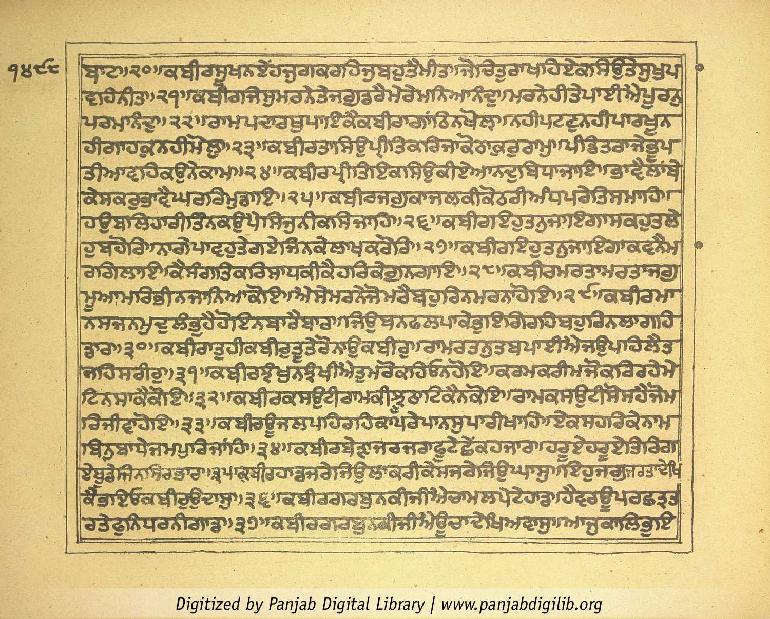 ੧੪੯੮
ਬਾਟ॥੨੦॥ਕਬੀਰਸੂਖਨਏਂਹਜੁਗਕਰਹਿਜੁਬਹੁਤੈਮੀਤ॥ਜੋਚਿਤੁਰਾਖਹਿਏਕਸਿਉਤੇਸੁਖੁਪ
ਵਹਿਨੀਤ॥੨੧॥ਕਬੀਰਜਿਸੁਮਰਨੇਤੇਜਗੁਡਰੈਮੇਰੇਮਨਿਆਨੰਦੁ॥ਮਰਨੇਹੀਤੇਪਾਈਐਪੂਰਨੁ
ਪਰਮਾਨੰਦੁ॥੨੨॥ਰਾਮਪਦਾਰਥੁਪਾਇਕੈਕਬੀਰਾਗਾਂਠਿਨਖੋਲ੍ਹ॥ਨਹੀਪਟਣੁਨਹੀਪਾਰਖੂਨ
ਹੀਗਾਹਕੁਨਹੀਮੋਲੁ॥੨੩॥ਕਬੀਰਤਾਸਿਉਪ੍ਰੀਤਿਕਰਿਜਾਕੋਠਾਕੁਰੁਰਾਮੁ॥ਪੰਡਿਤਰਾਜੇਭੂਪ
ਤੀਆਵਹਿਕਉਨੇਕਾਮ॥੨੪॥ਕਬੀਰਪ੍ਰੀਤਿਇਕਸਿਉਕੀਏਆਨਦੁਬਿਧਾਜਾਇ॥ਭਾਵੈਲਾਂਬੇ
ਕੇਸਕਰੁਭਾਵੈਘਰਰਿਮੁਡਾਇ॥੨੫॥ਕਬੀਰਜਗੁਕਾਜਲਕੀਕੋਠਰੀਅੰਧਪਰੇਤਿਸਮਾਹਿ॥
ਹਉਬਲਿਹਾਰੀਤਿਨਕਉਪੈਸਿਜੁਨੀਕਸਿਜਾਹਿ॥੨੬॥ਕਬੀਰਇਹੁਤਨੁਜਾਇਗਾਸਕਹੁਤਲੇ
ਹੁਬਹੋਰਿ॥ਨਾਗੇਪਾਵਹੁਤੇਗਏਜਿਨਕੇਲਾਖਕਰੋਰਿ॥੨੭॥ਕਬੀਰਇਹੁਤਨੁਜਾਇਗਾਕਵਨੈਮ
ਰਗਿਲਾਇ॥ਕੈਸੰਗਤਿਕਰਿਸਾਧਕੀਕੈਹਰਿਕੇਗੁਨਗਾਇ॥੨੮॥ਕਬੀਰਮਰਤਾਮਰਤਾਜਗੁ
ਮੂਆਮਰਿਭੀਨਜਾਨਿਆਕੋਇ॥ਐਸੇਮਰਨੇਜੋਮਰੈਬਹੁਰਿਨਮਰਨਾਹੋਇ॥੨੯॥ਕਬੀਰਮਾ
ਨਸਜਨਮੁਦੁਲੰਭੁਹੈਹੋਇਨਬਾਰੈਬਾਰ॥ਜਿਉਬਨਫਲਪਾਕੇਭੁਇਗਿਰਹਿਬਹੁਰਿਨਲਾਗਹਿ
ਡਾਰ॥੩੦॥ਕਬੀਰਾਤੁਹੀਕਬੀਰੁਤੂਤੇਰੋਨਾਉਕਬੀਰੁ॥ਰਾਮਰਤਨੁਤਬਪਾਈਐਜਉਪਹਿਲੈਤ
ਜਹਿਸਰੀਰੁ॥੩੧॥ਕਬੀਰਝੰਖੁਨਝੰਖੀਐਤੁਮਰੋਕਹਿਓਨਹੋਇ॥ਕਰਮਕਰੀਮਜੋਕਰਿਰਹੇਮੇ
ਟਿਨਸਾਕੈਕੋਇ॥੩੨॥ਕਬੀਰਕਸਉਟੀਰਾਮਕੀਝੂਠਾਟਿਕੈਨਕੋਇ॥ਰਾਮਕਸਉਟੀਸੋਸਹੈਜੋਮ
ਰਿਜੀਵਾਹੋਇ॥੩੩॥ਕਬੀਰਊਜਲਪਹਿਰਹਿਕਾਪਰੇਪਾਨਸੁਪਾਰੀਖਾਹਿ॥ਏਕਸਹਰਿਕੇਨਾਮ
ਬਿਨੁਬਾਧੇਜਮਪੁਰਿਜਾਂਹਿ॥੩੪॥ਕਬੀਰਬੇੜਾਜਰਜਰਾਫੂਟੇਛੇਂਕਹਜਾਰ॥ਹਰੂਏਹਰੂਏਤਿਰਿਗ
ਏਡੂਬੇਜਿਨਸਿਰਭਾਰ॥੩੫॥ਕਬੀਰਹਾਡਜਰੇਜਿਉਲਾਕਰੀਕੇਸਜਰੇਜਿਉਘਾਸੁ॥ਇਹੁਜਗੁਜਰਤਾਦੇਖਿ
ਕੈਭਇਓਕਬੀਰੁਉਦਾਸੁ॥੩੬॥ਕਬੀਰਗਰਬੁਨਕੀਜੀਐਚਾਮਲਪੇਟੇਹਾਡ॥ਹੈਵਰਊਪਰਛਤ੍ਰਤ
ਰਤੇਫੁਨਿਧਰਨੀਗਾਡ॥੩੭॥ਕਬੀਰਗਰਬੁਨਕੀਜੀਐਊਚਾਦੇਖਿਅਵਾਸੁ॥ਆਜੁਕਾਲਿਭੂਇ
Digitized by Panjab Digital Library | www.panjabdigilib.org